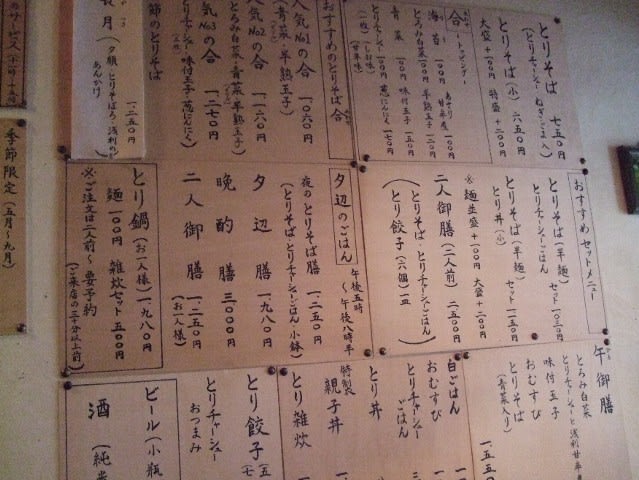 とりそば 七五〇円
(とりチャーシュー ねぎごま入)
とりそば(小) 六五〇円
大盛+一〇〇円 特盛+二〇〇円
合 トッピング
海苔 一〇〇円
とろみ白菜 一〇〇円 半熟玉子 一二〇円
青菜 一〇〇円 味付玉子 一五〇円
おすすめのとりそば合
人気No1の合 一、〇六〇円
(青菜・半熟玉子)
人気No2の合 一、一六〇円
(とろみ白菜・青菜・半熟玉子)
人気No3の合 一、二七〇円
節のとりそば
長月
あんかけ
一、二五〇円
季節限定(五月〜九月)
おすすめセットメニュー
とりそば(半麺) セット 一、〇三〇円
とりチャーシューごはん
とりそば(半麺) セット 一、一五〇円
とり丼(小)
※麺並盛+一〇〇円 大盛+二〇〇円
二人御膳(二人前) 二、五〇〇円
(とりそば・とりチャーシューごはん)
(とり餃子(六個)一皿
夕辺のごはん 午後五時〜午後八時半
夜のとりそば膳 一、二五〇円
(とりそば・とりチャーシューごはん 小鉢)
夕辺膳 一、九八〇円
晩酌膳 三、〇〇〇円
二人御膳 一、二五〇円
(お一人様)
とり鍋(お一人様) 一、九八〇円
麺 一〇〇円 雑炊セット 五〇〇円
※ご注文は二人前〜 要予約
(ご来店の三十分以上前)
午御膳
とろみ白菜
味付玉子
おむすび
とりそば
(青菜入り)
一、五五
白ごはん
おむすび
とりチャーシューごはん
とり丼
特製親子丼
とり雑炊
とり餃子
とりチャーシュー
おつまみ
ビール(小瓶
酒(純米